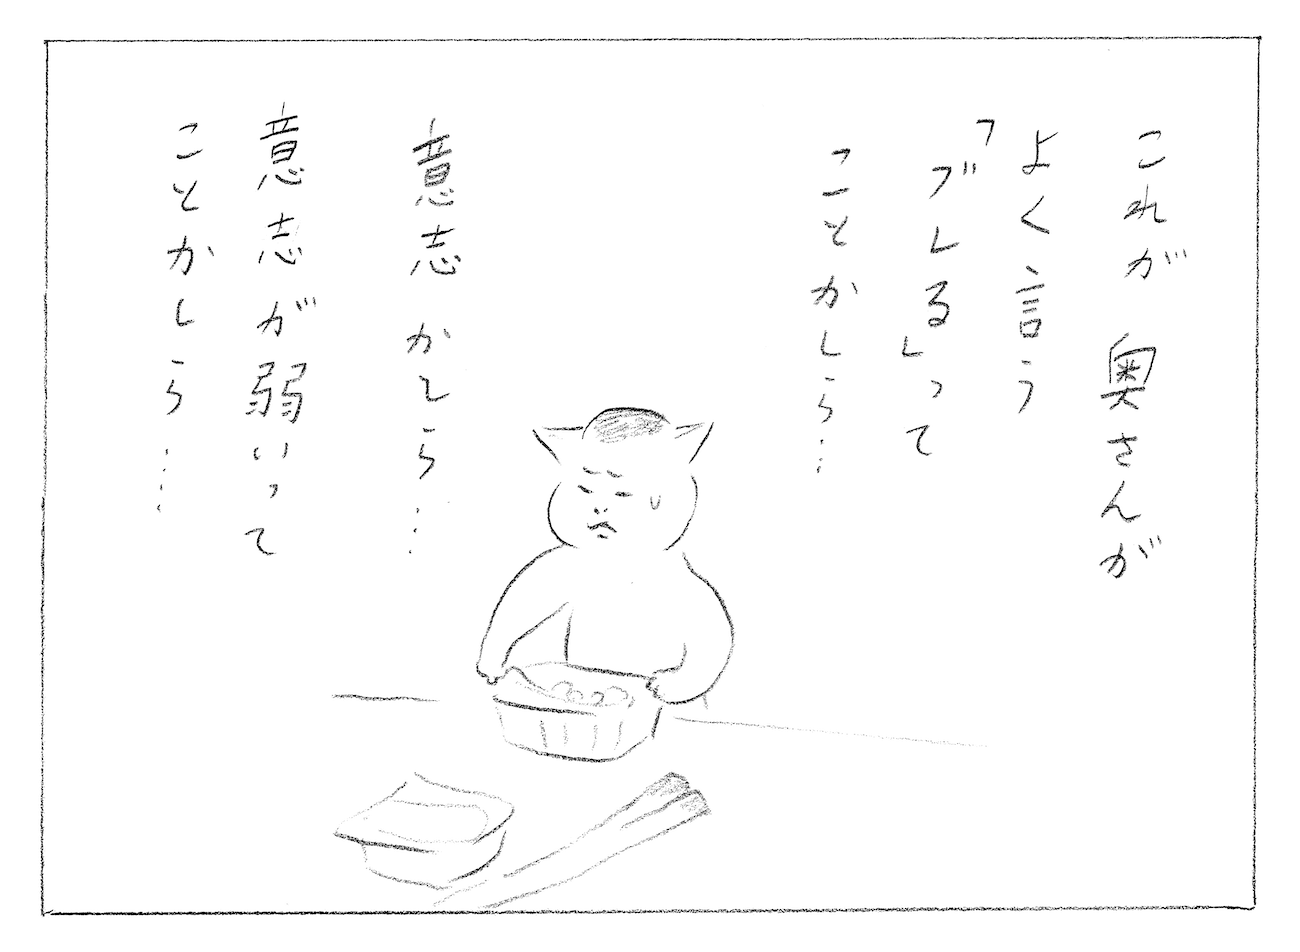 これが 奥さんが
よく言う
「ブレる」って
ことかしら…
意志かしら…
意志が弱いって
ことかしら…